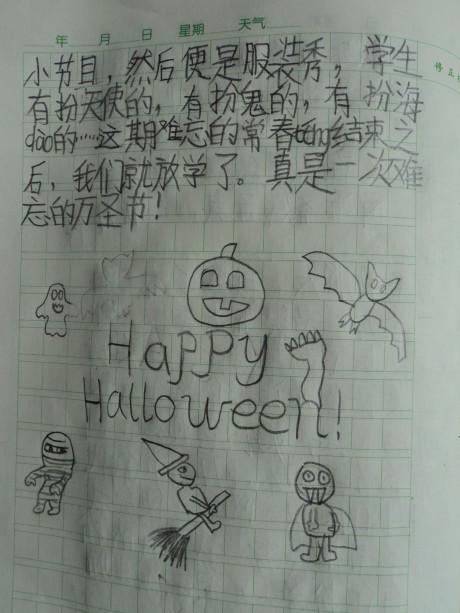 年 月 日 星期 天气
小节目，然后便是服装秀，学生
有扮天使的，有扮鬼的，有扮海
dào的……这期难忘的常春téng结束之
后，我们就放学了。真是一次难
忘的万圣节！
Happy
Halloween!